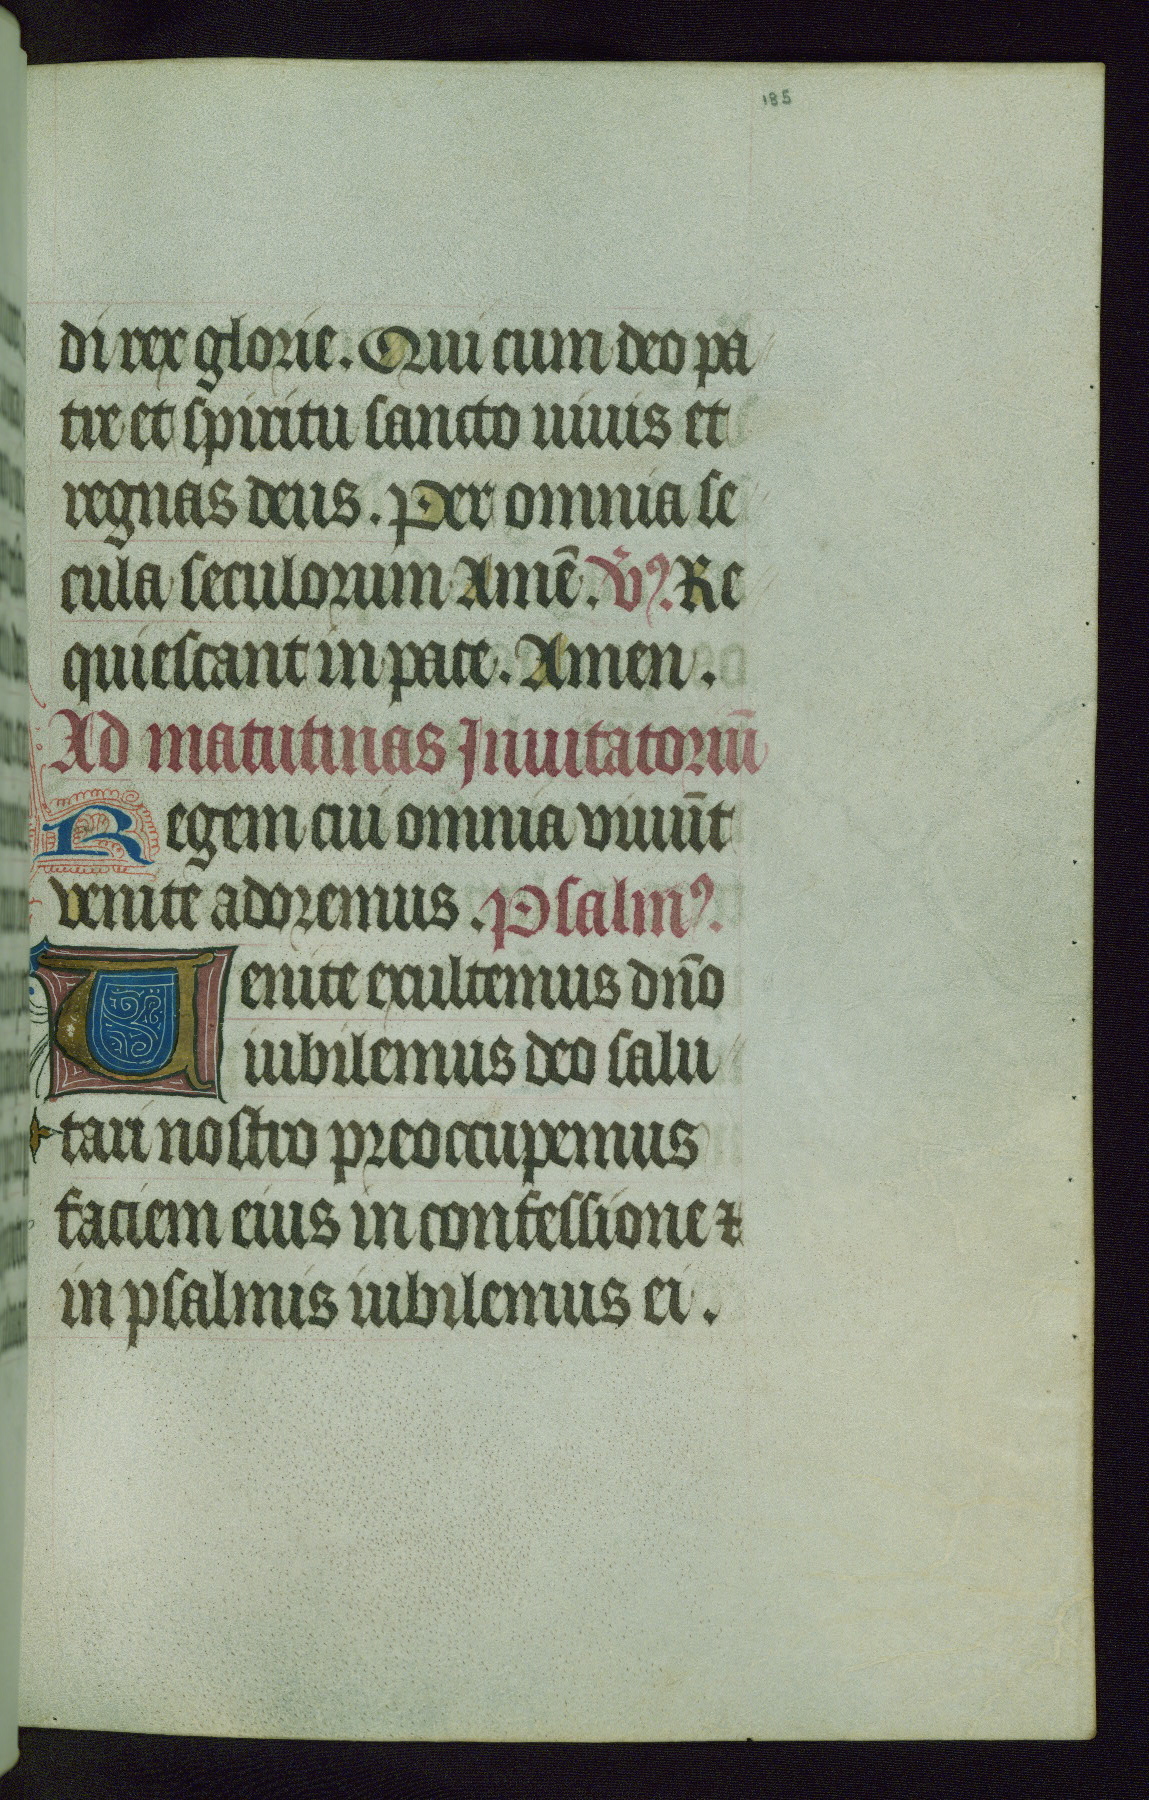 185
di rex glorie. Qui cum deo pa
tre et spiritu sancto uiuis et
regnas deus. Per omnia se
cula seculorum Amē. V̄ꝰ. Re
quiescant in pace. Amen.
Ad matutinas Inuitatoriū
Regem cui omnia viuūt
venite adoremus. Psalmꝰ.
Uenite exultemus dn̄o
iubilemus deo salu
tari nostro preoccupemus
faciem eius in confessione ⁊
in psalmis iubilemus ei.